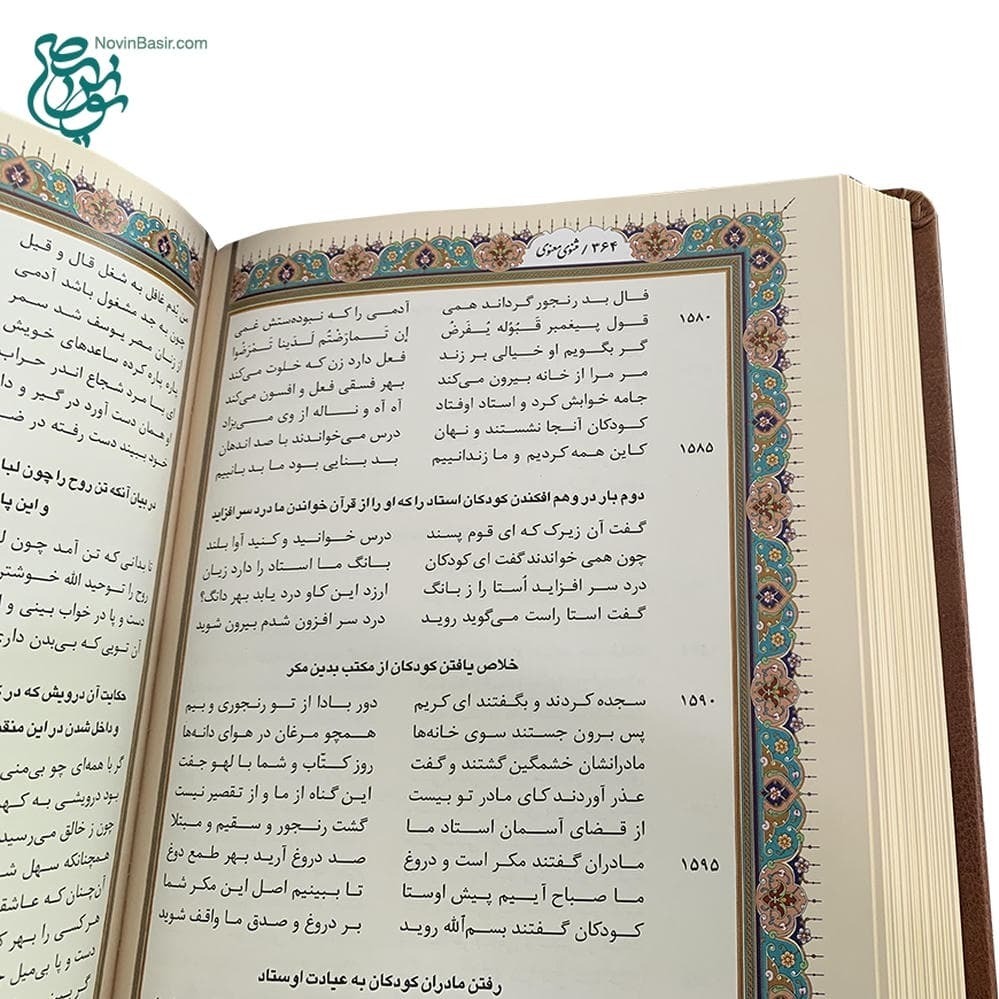 NovinBasir.com
۳۶۴ / مثنوی معنوی
فال بد رنجور گرداند همی آدمی را که نبوده‌ستش غمی
۱۵۸۰ قول پیغمبر قَبُوله یُفرَضْ اِن تَمارَضْتُم لَدَینا تَمرَضُوا
گر بگویم او خیالی بر زند فعل دارد زن که خلوت می‌کند
مر مرا از خانه بیرون می‌کند بهر فسقی فعل و افسون می‌کند
جامه خوابش کرد و استاد اوفتاد آه آه و ناله از وی می‌بزاد
کودکان آنجا نشستند و نهان درس می‌خواندند با صد اندهان
۱۵۸۵ کاین همه کردیم و ما زندانییم بد بنایی بود ما بد بانییم
دوم بار در وهم افکندن کودکان استاد را که او را از قرآن خواندن ما درد سر افزاید
گفت آن زیرک که ای قوم پسند درس خوانید و کنید آوا بلند
چون همی خواندند گفت ای کودکان بانگ ما استاد را دارد زیان
درد سر افزاید اُستا را ز بانگ ارزد این کاو درد یابد بهر دانگ؟
گفت استا راست می‌گوید روید درد سر افزون شدم بیرون شوید
خلاص یافتن کودکان از مکتب بدین مکر
۱۵۹۰ سجده کردند و بگفتند ای کریم دور بادا از تو رنجوری و بیم
پس برون جستند سوی خانه‌ها همچو مرغان در هوای دانه‌ها
مادرانشان خشمگین گشتند و گفت روز کتّاب و شما با لهو جفت
عذر آوردند کای مادر تو بیست این گناه از ما و از تقصیر نیست
از قضای آسمان استاد ما گشت رنجور و سقیم و مبتلا
۱۵۹۵ مادران گفتند مکر است و دروغ صد دروغ آرید بهر طمع دوغ
ما صباح آییم پیش اوستا تا ببینیم اصل این مکر شما
کودکان گفتند بسم‌الله روید بر دروغ و صدق ما واقف شوید
رفتن مادران کودکان به عیادت اوستاد
من بُدم غافل به شغل قال و قیل
چون به جد مشغول باشد آدمی
از زنان مصر یوسف شد سمر
پاره پاره کرده ساعدهای خویش
ای بسا مرد شجاع اندر حراب
او همان دست آورد در گیر و دا
خود ببیند دست رفته در ضر
در بیان آنکه تن روح را چون لبا
و این پا
تا بدانی که تن آمد چون ل
روح را توحید الله خوشتر
دست و پا در خواب بینی و ا
آن تویی که بی‌بدن داری
حکایت آن درویش که در ک
و داخل شدن در این منق
گر با همه‌ای چو بی‌منی
بود درویشی به کهـ
چون ز خالق می‌رسید
همچنانکه سهل شـ
آن‌چنان که عاشقـ
هر کسی را بهر کـ
دست و پا بی‌میل جـ
گر ببینـ